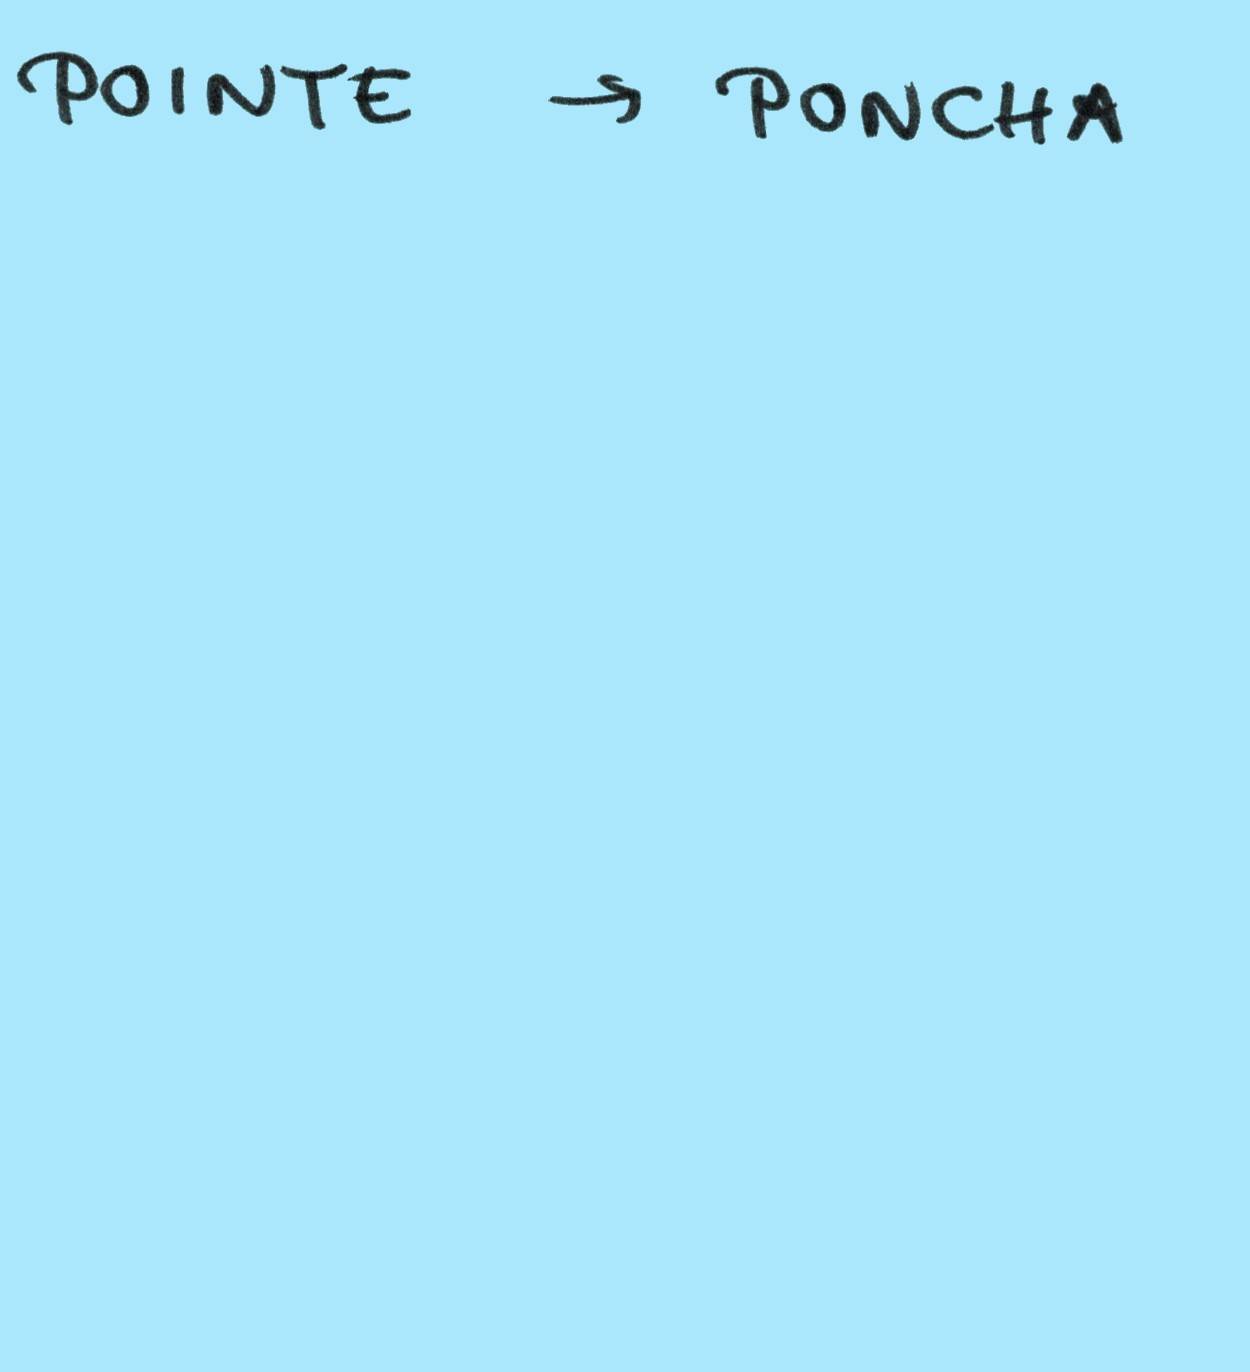 POINTE → PONCHA